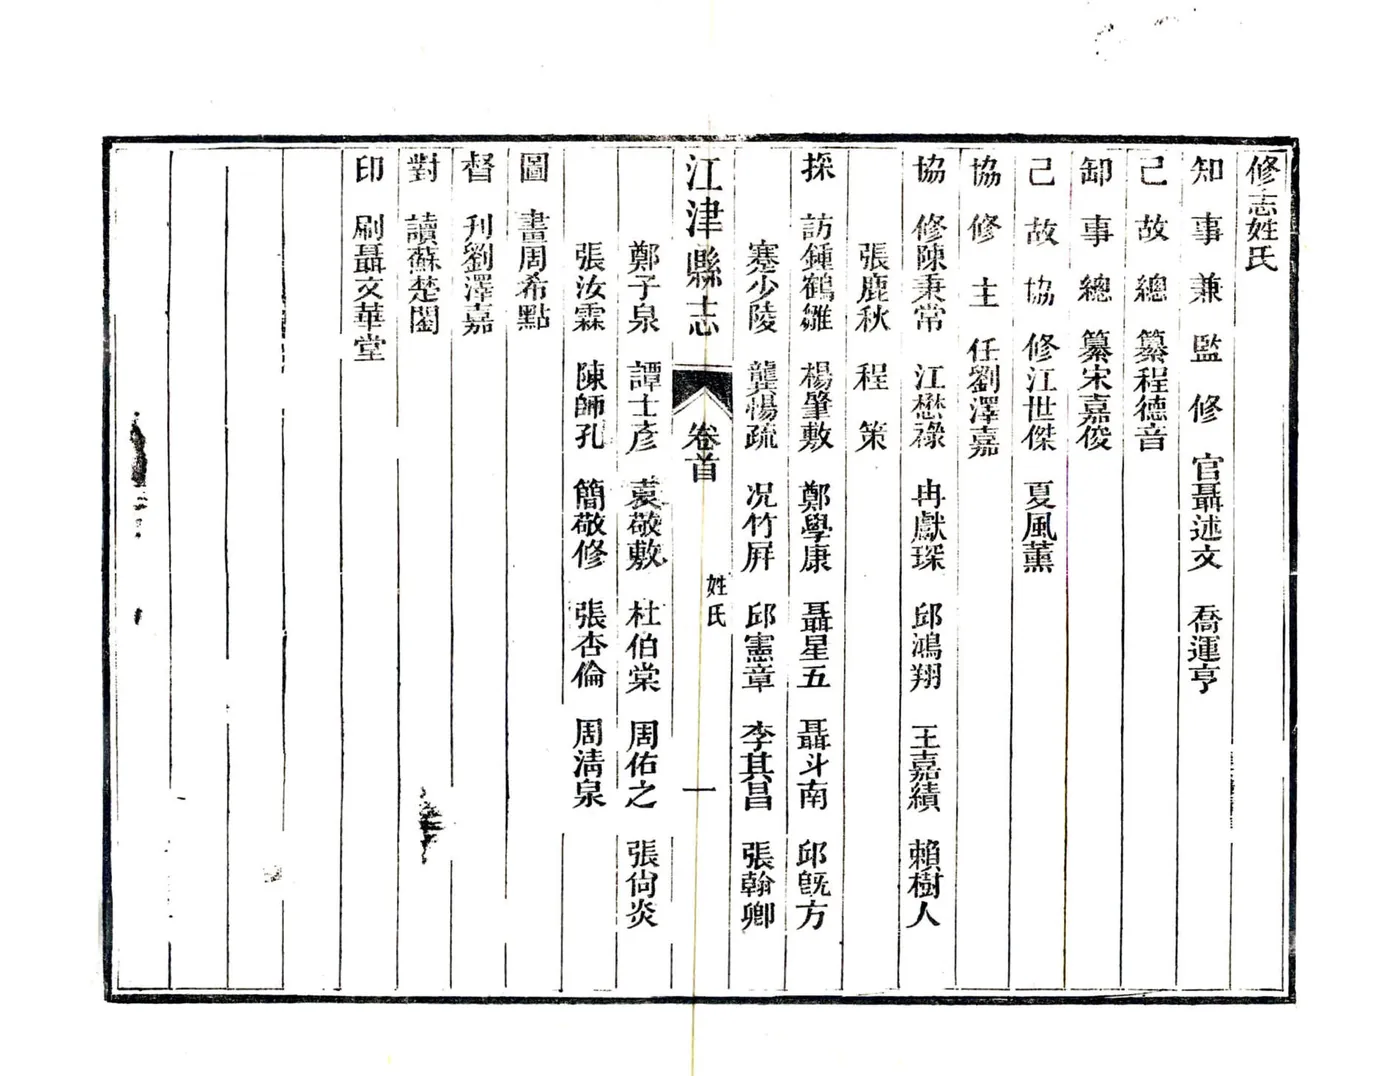 修志姓氏
知事兼監修官聶述文 喬運亨
己故總纂程德音
卸事總纂宋嘉俊
己故協修江世傑 夏風薰
協修主任劉澤嘉
協修陳秉常 江懋祿 冉獻琛 邱鴻翔 王嘉績 賴樹人
張鹿秋 程策
採訪鍾鶴雛 楊肇敷 鄭學康 聶星五 聶斗南 邱旣方
蹇少陵 龔惕疏 況竹屛 邱憲章 李其昌 張翰卿
江津縣志 卷首 姓氏 一
鄭子泉 譚士彥 袁敬敷 杜伯棠 周佑之 張尙炎
張汝霖 陳師孔 簡敬修 張杏倫 周淸泉
圖畫周希點
督刋劉澤嘉
對讀蘇楚闓
印刷聶文華堂